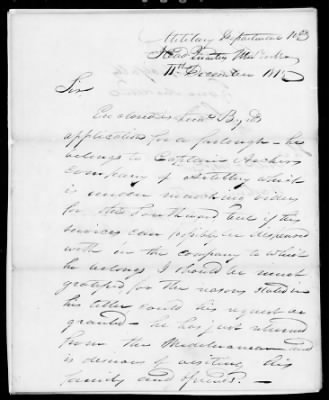 Military Department No 3
Head Quarters
11th December 181
Sir,
Enclosed is Lieut Byrd's
application for a furlough - he
belongs to Captain Archers
company of Artillery which
is under marching orders
for the Southward but if his
services can possibly be dispensed
with in the company to which
he belongs I should be much
gratified for the reasons stated in
his letter could his request be
granted - he has just returned
from the Mediterranean and
is desirous of visiting his
family and friends. -